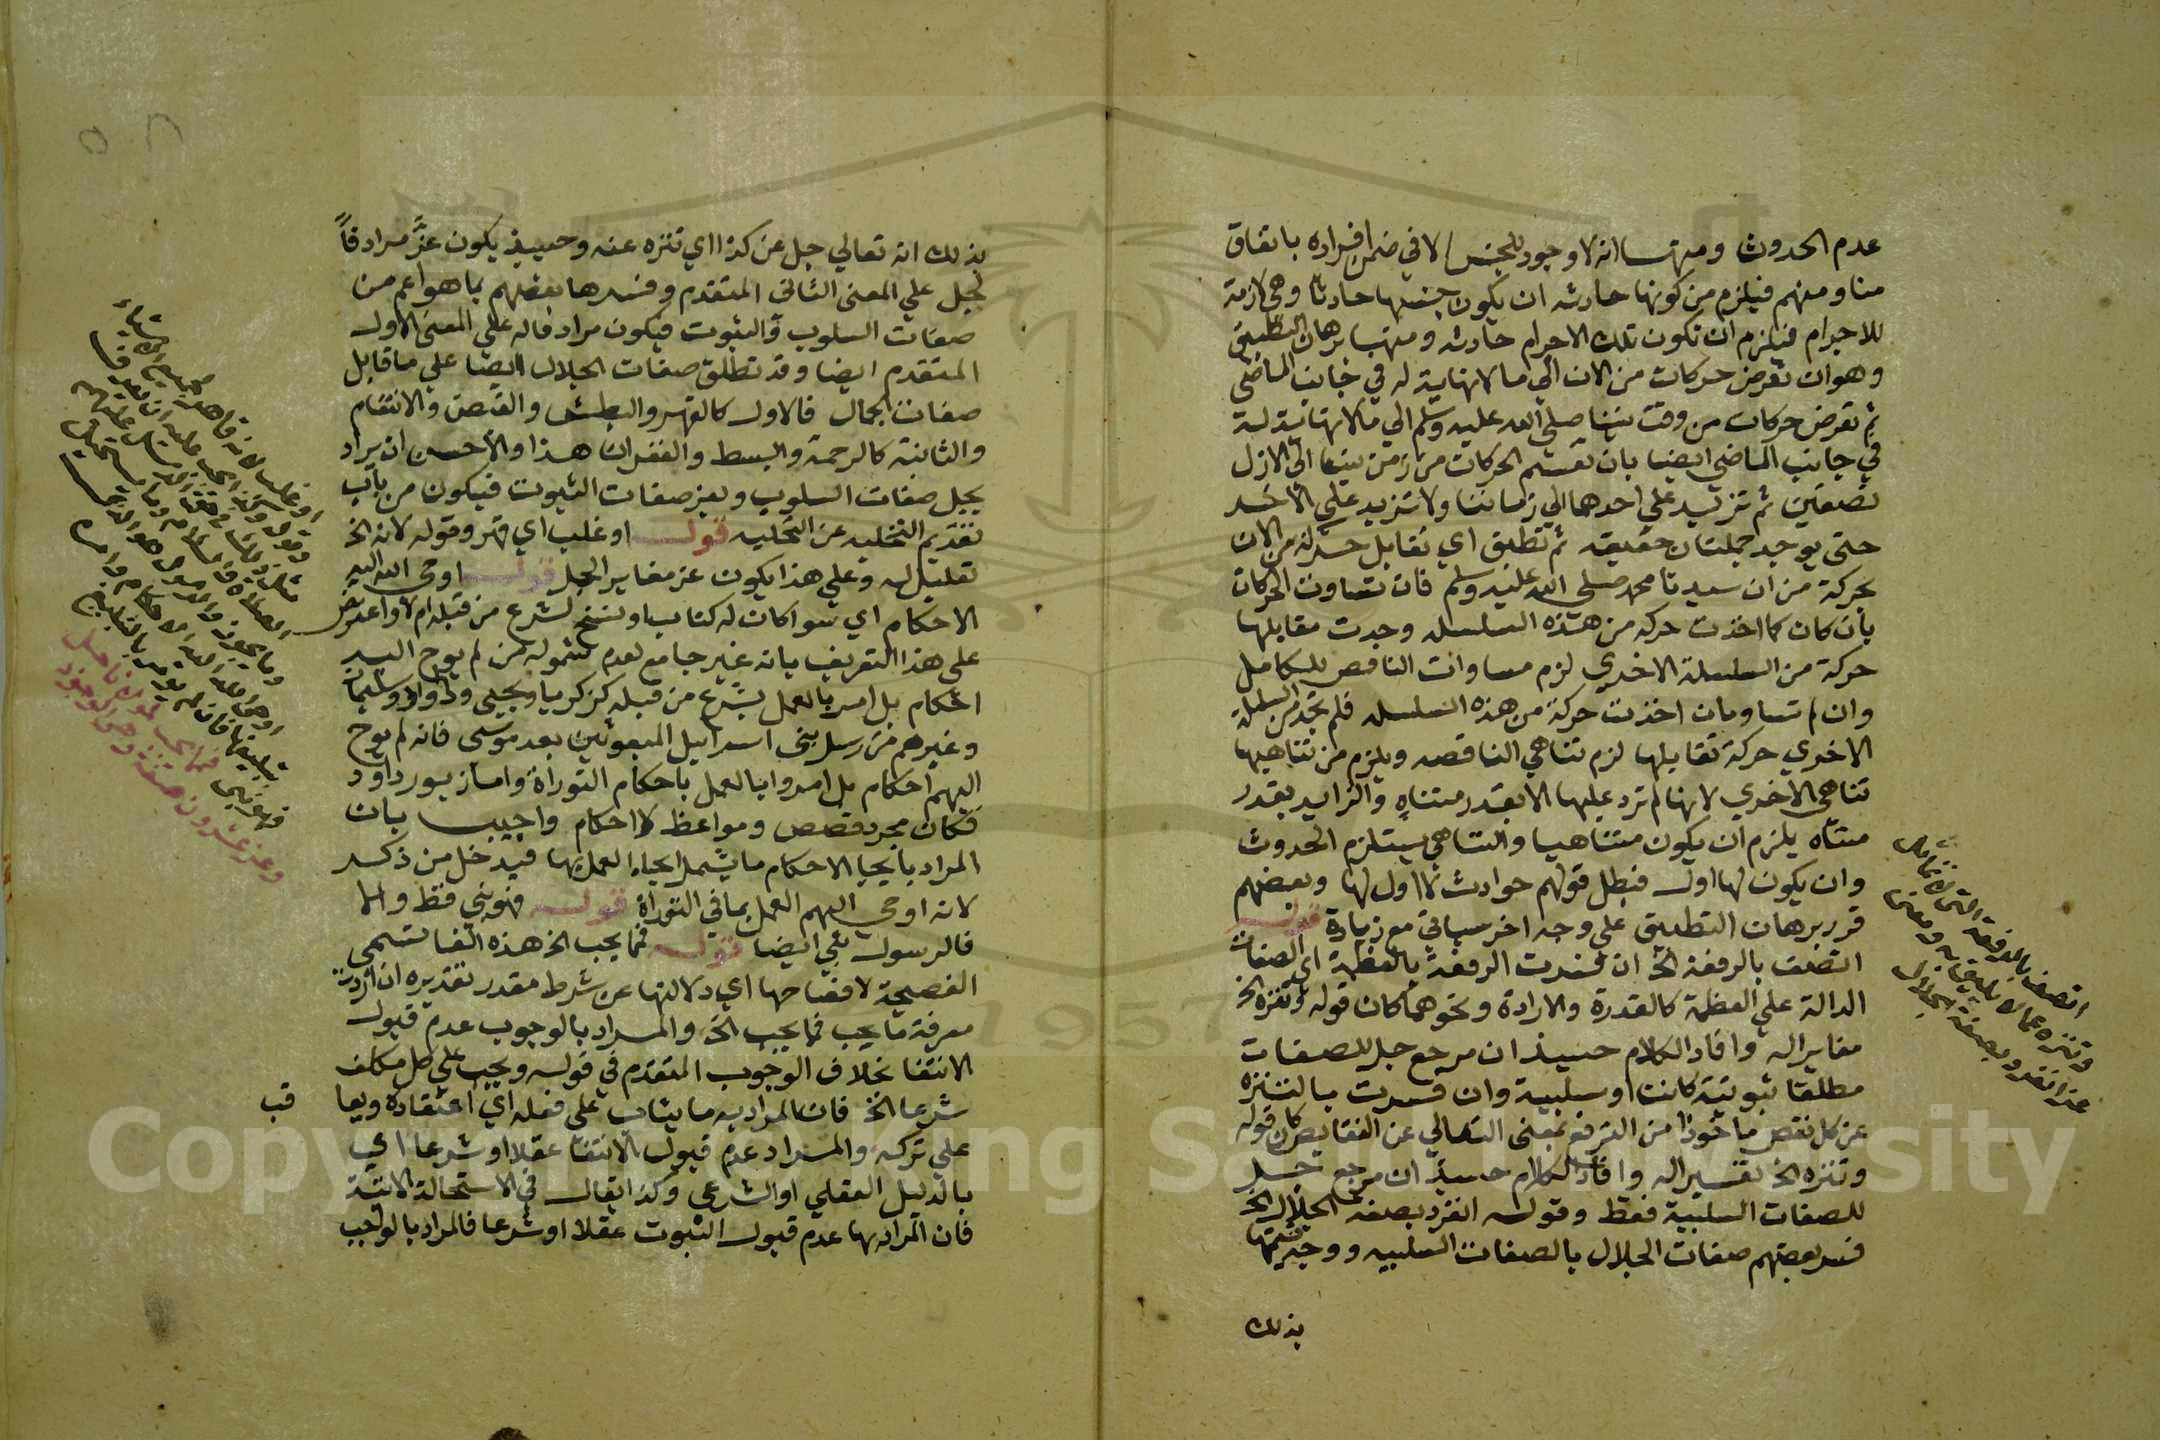 عدم الحدوث ومنها انه لا وجود للجنس الا في ضمن افراده باتفاق
منا ومنهم فيلزم من كونها حادثه ان يكون جنسها حادثا وهي لازمة
للاجرام فيلزم ان تكون تلك الاجرام حادثه ومنها برهان التطبيق
وهو ان تفرض حركات من الان الي ما لا نهاية له في جانب الماضي
ثم تفرض حركات من وقت نبينا صلي الله عليه وسلم الي ما لا نهاية له
في جانب الماضي ايضا بان تقسم الحركات من زمن نبينا الي الازل
نصفين ثم تزيد علي احدهما الي زماننا ولا تزيد علي الاخر
حتي يوجد جملتان حقيقه ثم تطبق اي تقابل حركة من الان
بحركة من ان سيدنا محمد صلي الله عليه وسلم فان تساوت الحركات
بان كان كلما اخذت حركه من هذه السلسله وجدت مقابلها
حركة من السلسلة الاخري لزم مساوات الناقص للكامل
وان لم تتساو بان اخذت حركة من هذه السلسله فلم تجد من السلسلة
الاخري حركة تقابلها لزم تناهي الناقصه ويلزم من تناهيها
تناهي الاخري لانها لم تزد عليها الا بقدر متناه والزايد بقدر
متناه يلزم ان يكون متناهيا والتناهي يستلزم الحدوث
وان يكون لها اول فبطل قولهم حوادث لا اول لها وبعضهم
قرر برهان التطبيق علي وجه اخر سياتي مع زيادة قوله
اتصف بالرفعة الخ ان فسرت الرفعة بالعظمة اي الصفات
الدالة علي العظمة كالقدرة والارادة ونحوهما كان قوله وتنزه الخ
مغايرا له وافاد الكلام حينيذ ان مرجع جل للصفات
مطلقا ثبوتية كانت او سلبية وان فسرت بالتنزه
عن كل نقص ماخوذا من الترفع بمعني التعالي عن النقايص كان قوله
وتنزه الخ تفسيرا له وافاد الكلام حينيذ ان مرجع جل
للصفات السلبية فقط وقوله انفرد بصفة الجلال الخ
فسر بعضهم صفات الجلال بالصفات السلبيه ووجه تسميتها
بذلك
اتصف بالرفعة
وتنزه عما لا يليق به ومعني
عز انفرد بصفة الجلال
بذلك انه تعالي جل عن كذا اي تنزه عنه وحينيذ يكون عز مرادفاً
لجل علي المعني الثاني المتقدم وفسرها بعضهم بما هو اعم من
صفات السلوب والثبوت فيكون مرادفا له علي المعني الاول
المتقدم ايضا وقد تطلق صفات الجلال ايضا علي ما قابل
صفات الجمال فالاول كالقهر والبطش والقبض والانتقام
والثانية كالرحمة والبسط والغفران هذا والاحسن ان يراد
بجل صفات السلوب وبعز صفات الثبوت فيكون من باب
تقديم التخليه عن التحليه قوله او غلب اي قهر وقوله لانه الخ
تعليل له وعلي هذا يكون عز مغاير الجل قوله اوحي الله اليه
الاحكام اي سوا كان له كتاب او نسخ لشرع من قبله ام لا واعترض
علي هذا التعريف بانه غير جامع لعدم شموله من لم يوح اليه
احكام بل امر بالعمل بشرع من قبله كزكريا ويحيي وداود وسليمان
وغيرهم من رسل بني اسرائيل المبعوثين بعد موسي فانه لم يوح
اليهم احكام بل امروا بالعمل باحكام التوراة واما زبور داود
فكان مجرد قصص ومواعظ لا احكام واجيب بان
المراد بايحا الاحكام ما يشمل ايحاء العمل بها فيدخل من ذكر
لانه اوحي اليهم العمل بما في التوراة قوله فهو نبي فقط والا
فالرسول نبي ايضا قوله فما يجب الخ هذه الفا تسمي
الفصيحة لافصاحها اي دلالتها عن شرط مقدر تقديره ان اردت
معرفة ما يجب فما يجب الخ والمراد بالوجوب عدم قبول
الانتفا بخلاف الوجوب المتقدم في قوله ويجب علي كل مكلف
شرعا الخ فان المراد به ما يثاب علي فعله اي اعتقاده ويعا
قب
علي تركه والمراد عدم قبول الانتفا عقلا او شرعا اي
بالدليل العقلي او الشرعي وكذا يقال في الاستحالة الاتية
فان المراد بها عدم قبول الثبوت عقلا او شرعا فالمراد بالواجب
فما يجب
وعز عشرون صفة وهي الوجود
Copyright © King Saud University
1957